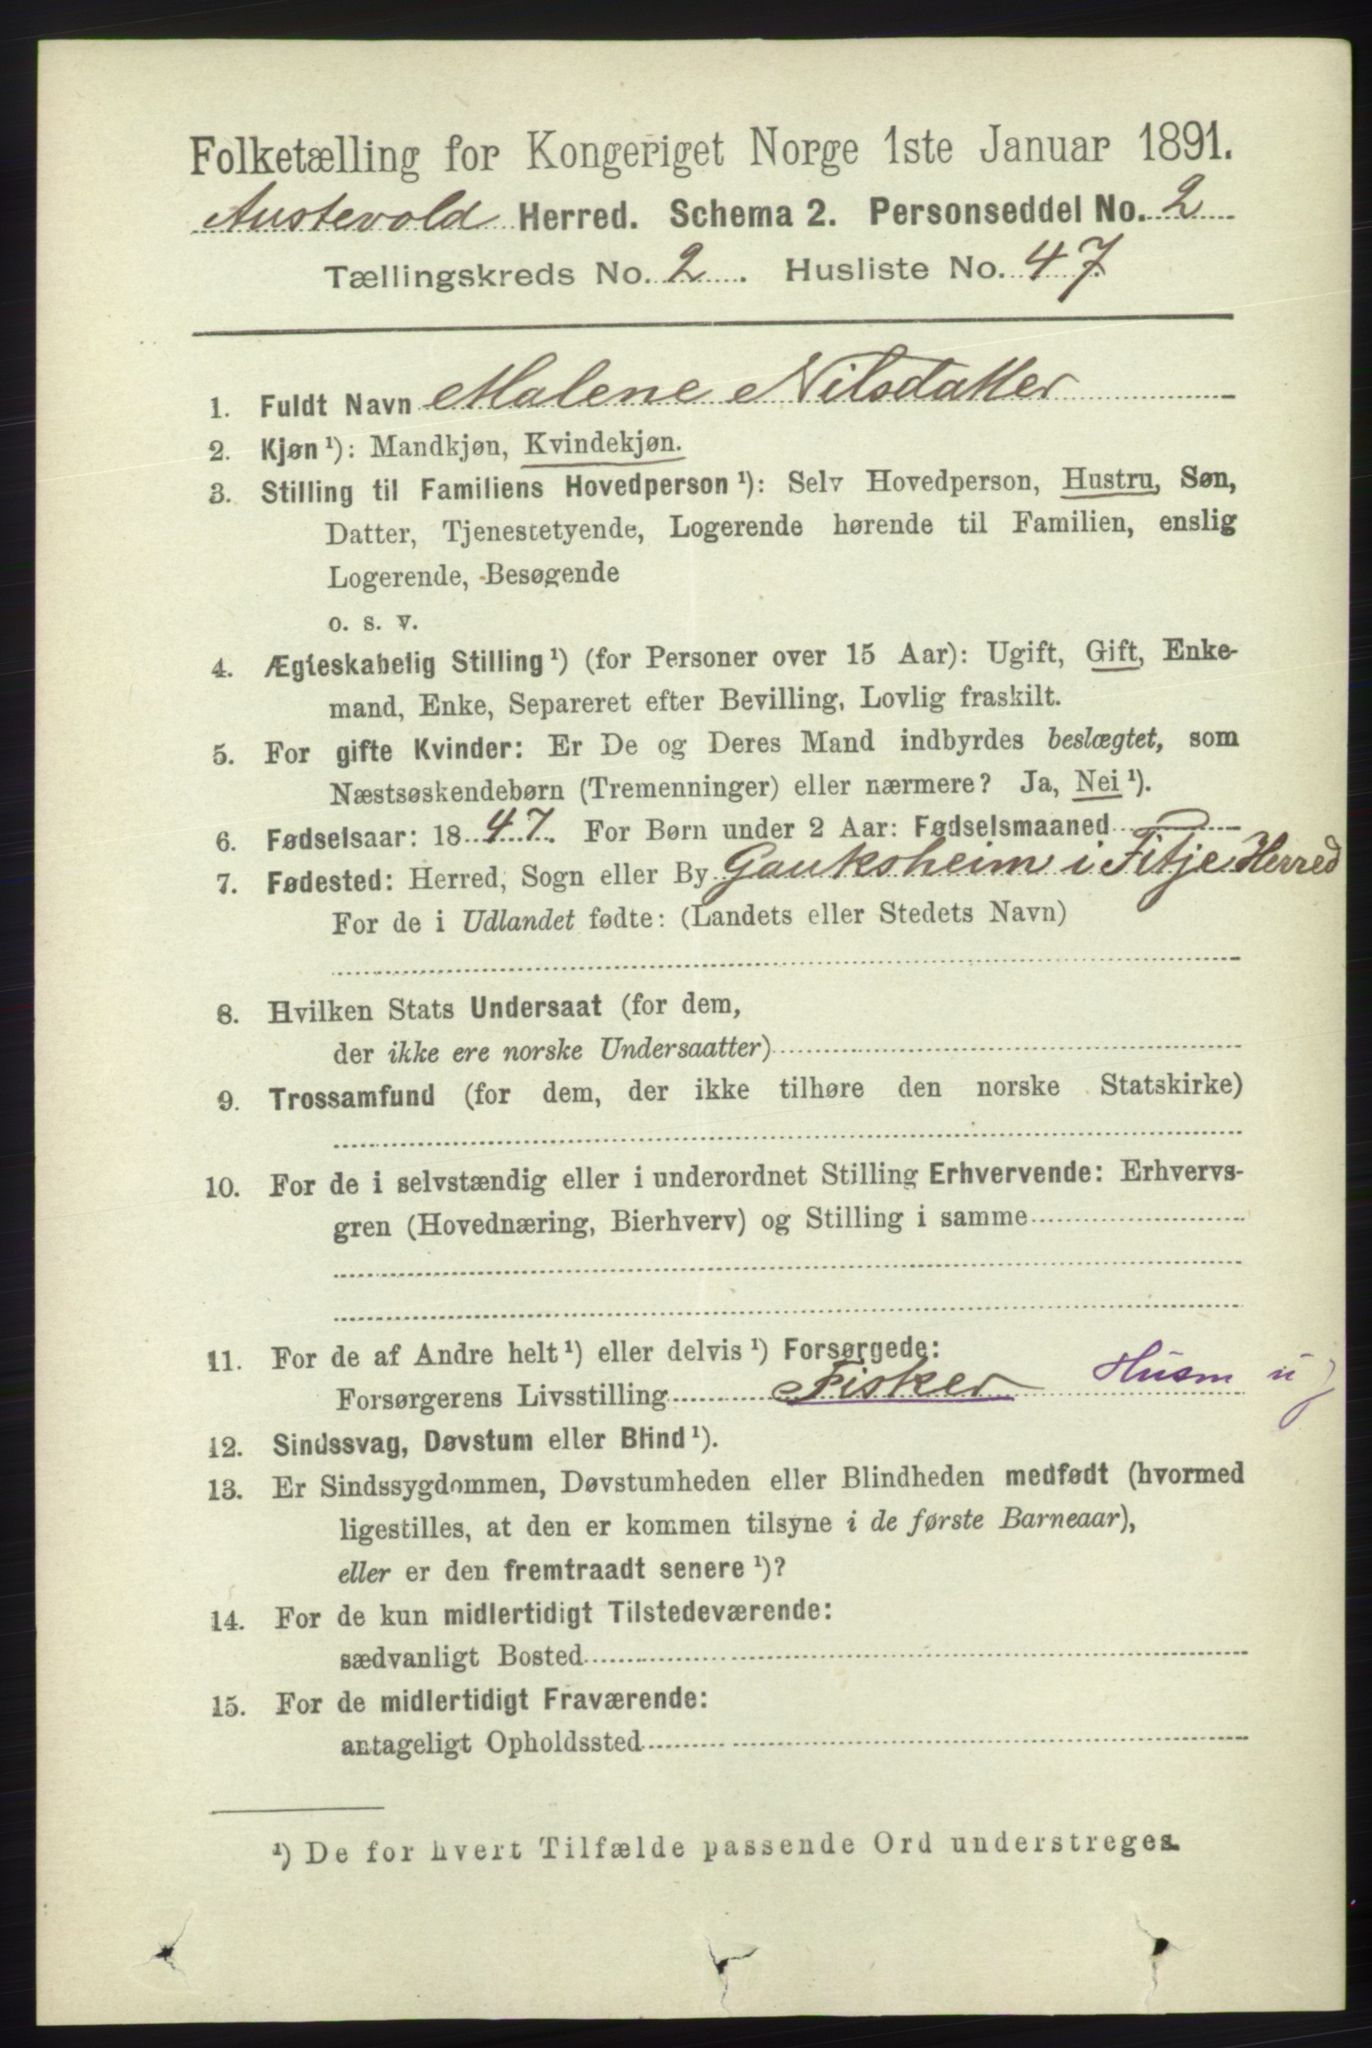 Folketælling for Kongeriget Norge 1ste Januar 1891.
Austevold Herred. Schema 2. Personseddel No. 2
Tællingskreds No. 2. Husliste No. 47
1. Fuldt Navn Malene Nilsdatter
2. Kjøn ¹): Mandkjøn, Kvindekjøn.
3. Stilling til Familiens Hovedperson ¹): Selv Hovedperson, Hustru, Søn,
Datter, Tjenestetyende, Logerende hørende til Familien, enslig
Logerende, Besøgende
o. s. v.
4. Ægteskabelig Stilling ¹) (for Personer over 15 Aar): Ugift, Gift, Enke-
mand, Enke, Separeret efter Bevilling, Lovlig fraskilt.
5. For gifte Kvinder: Er De og Deres Mand indbyrdes beslægtet, som
Næstsøskendebørn (Tremenninger) eller nærmere? Ja, Nei ¹).
6. Fødselsaar: 1847. For Børn under 2 Aar: Fødselsmaaned
7. Fødested: Herred, Sogn eller By Gauksheim i Fitje Herred
For de i Udlandet fødte: (Landets eller Stedets Navn)
8. Hvilken Stats Undersaat (for dem,
der ikke ere norske Undersaatter)
9. Trossamfund (for dem, der ikke tilhøre den norske Statskirke)
10. For de i selvstændig eller i underordnet Stilling Erhvervende: Erhvervs-
gren (Hovednæring, Bierhverv) og Stilling i samme
11. For de af Andre helt ¹) eller delvis ¹) Forsørgede:
Forsørgerens Livsstilling Fisker Husm u j
12. Sindssvag, Døvstum eller Blind ¹).
13. Er Sindssygdommen, Døvstumheden eller Blindheden medfødt (hvormed
ligestilles, at den er kommen tilsyne i de første Barneaar),
eller er den fremtraadt senere ¹)?
14. For de kun midlertidigt Tilstedeværende:
sædvanligt Bosted
15. For de midlertidigt Fraværende:
antageligt Opholdssted
¹) De for hvert Tilfælde passende Ord understreges.